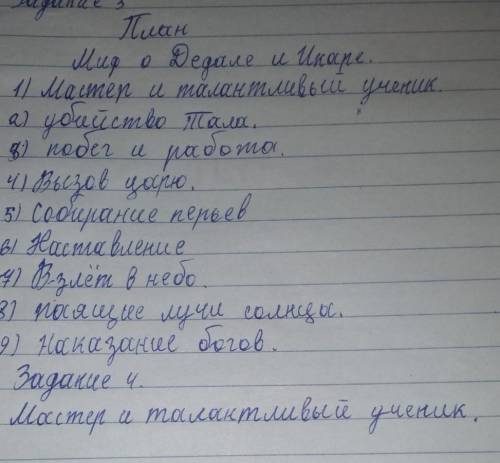 Задание 3
План
Миф о Дедале и Икаре.
1) Мастер и талантливый ученик.
2) убийство Тала.
3) побег и работа.
4) Вызов царю.
5) Собирание перьев
6) Наставление
7) Взлёт в небо.
8) палящие лучи солнца.
9) Наказание богов.
Задание 4.
Мастер и талантливый ученик.